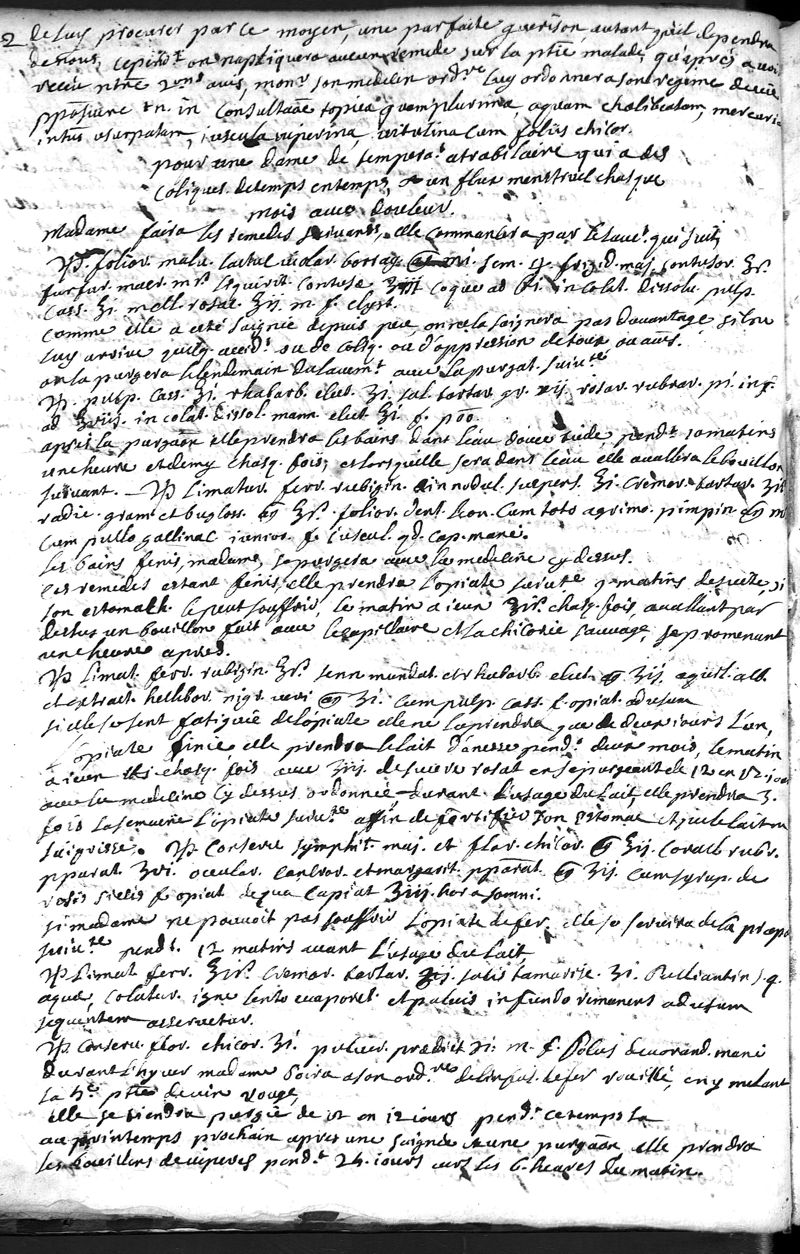 2 de luy procurer par ce moyen, une parfaite guerison autant qu'il dependra
de nous, cepend.t on n'apliquera aucun remede sur la ptie malade, qu'aprés avoir
receu nostre 2. avis, mon.r son medecin ord.re luy ordonnera son regime de vie
in consultaõne topica quamplurima, aquam chalibeatam, mercurio
intus usurpatum, iuscula viperina, vitulina cum foliis chicor.
pour une dame de tempera.t atrabilaire qui a des
coliques de temps en temps, & un flux menstruel chasque
mois avec douleur.
Madame faira les remedes suivants, elle commancera par le lavem.t qui suit
R. folior. malv. lactuc. violar. borrag. sem. 4. frigid. maj. contusor.
furfur. macr. liquirit. contusae coque ad in colat. dissolv. pulp.
cass. mell. rosac. m. f. clyst.
comme elle a esté saignée depuis peu, on ne la saignera pas davantage si on
luy arrive quelq. accid.t ou de coliq. ou d'oppression de toux ou autre.
on la purgera le lendemain du lavem.t avec la purgat. suiv.te
R. pulp. cass. rhabarb. elect. sal. tartar. gr. xij rosar. rubrar. p.i. inf.
ad in colat. dissol. mann. elect. f. poõ.
aprés la purgaõn elle prendra les bains dans l'eau douce tiede pend.t 10 matins
une heure et demy chasq. fois, et lorsquelle sera dans l'eau elle avallera le bouillon
suivant. R. limatur. ferr. rubigin. in nodul. suspens. cremor. tartar.
radic. gram. et bugloss. folior. dent. leon. cum toto agrimo. pimpin.
cum pullo gallinac. iunior. f. iuscul. qd. cap. mane.
les bains finis, madame, se purgera avec la medecine cy dessus.
ces remedes estant finis, elle prendra l'opiate suiv.te 9 matins de suite, si
son estomach le peut souffrir, le matin a ieun chasq. fois avallant par
dessus un bouillon fait avec le capillaire et la chicorée sauvage, se promenant
une heure apres.
R. limat. ferr. rubigin. senn. mundat. et rhabarb. elect. agaric. alb.
et extract. hellebor. nigr. veri cum pulp. cass. f. opiat. ad usum
si elle se sent fatiguée de l'opiate elle ne la prendra que de deux iours l'un,
l'opiate finie elle prendra le lait d'anesse pend.t deux mois, le matin
a ieun chasq. fois avec de sucre rosat en se purgeant de 12 en 12 iours
avec la medecine cy dessus ordonnée durant l'usage du lait, elle prendra 3.
fois la semaine l'opiate suiv.te affin de fortifier son estomac et que le lait ne
s'aigrisse. R. conserv. symphit. maj. et flor. chicor. corall. rubr.
pparat. oculor. cancror. et margarit. pparat. cum syrup. de
rosis siccis f. opiat de qua capiat hora somni.
si madame ne pouvoit pas souffrir l'opiate de fer, elle se servira de la prepa
suiv.te pend.t 12 matins avant l'usage du lait
R. limat. ferr. cremor. tartar. salis tamarisc. bulliant in s.q.
aquae, colatur. igne lento evaporet. et pulvis in fundo rimanens ad usum
sequentem asservetur.
R. conserv. flor. chicor. pulver. praedict. m. f. bolus devorand. mane
durant l'hyver madame boira a son ord.re de l'infus. de fer rouillé, en y mellant
la 4.e ptie de vin rouge,
elle se tiendra purgée de 12 en 12 iours pend.t ce temps la
au printemps prochain apres une saignée et une purgaõn, elle prendra
les bouillons de viperes pend.t 24. iours vers les 6. heures du matin.